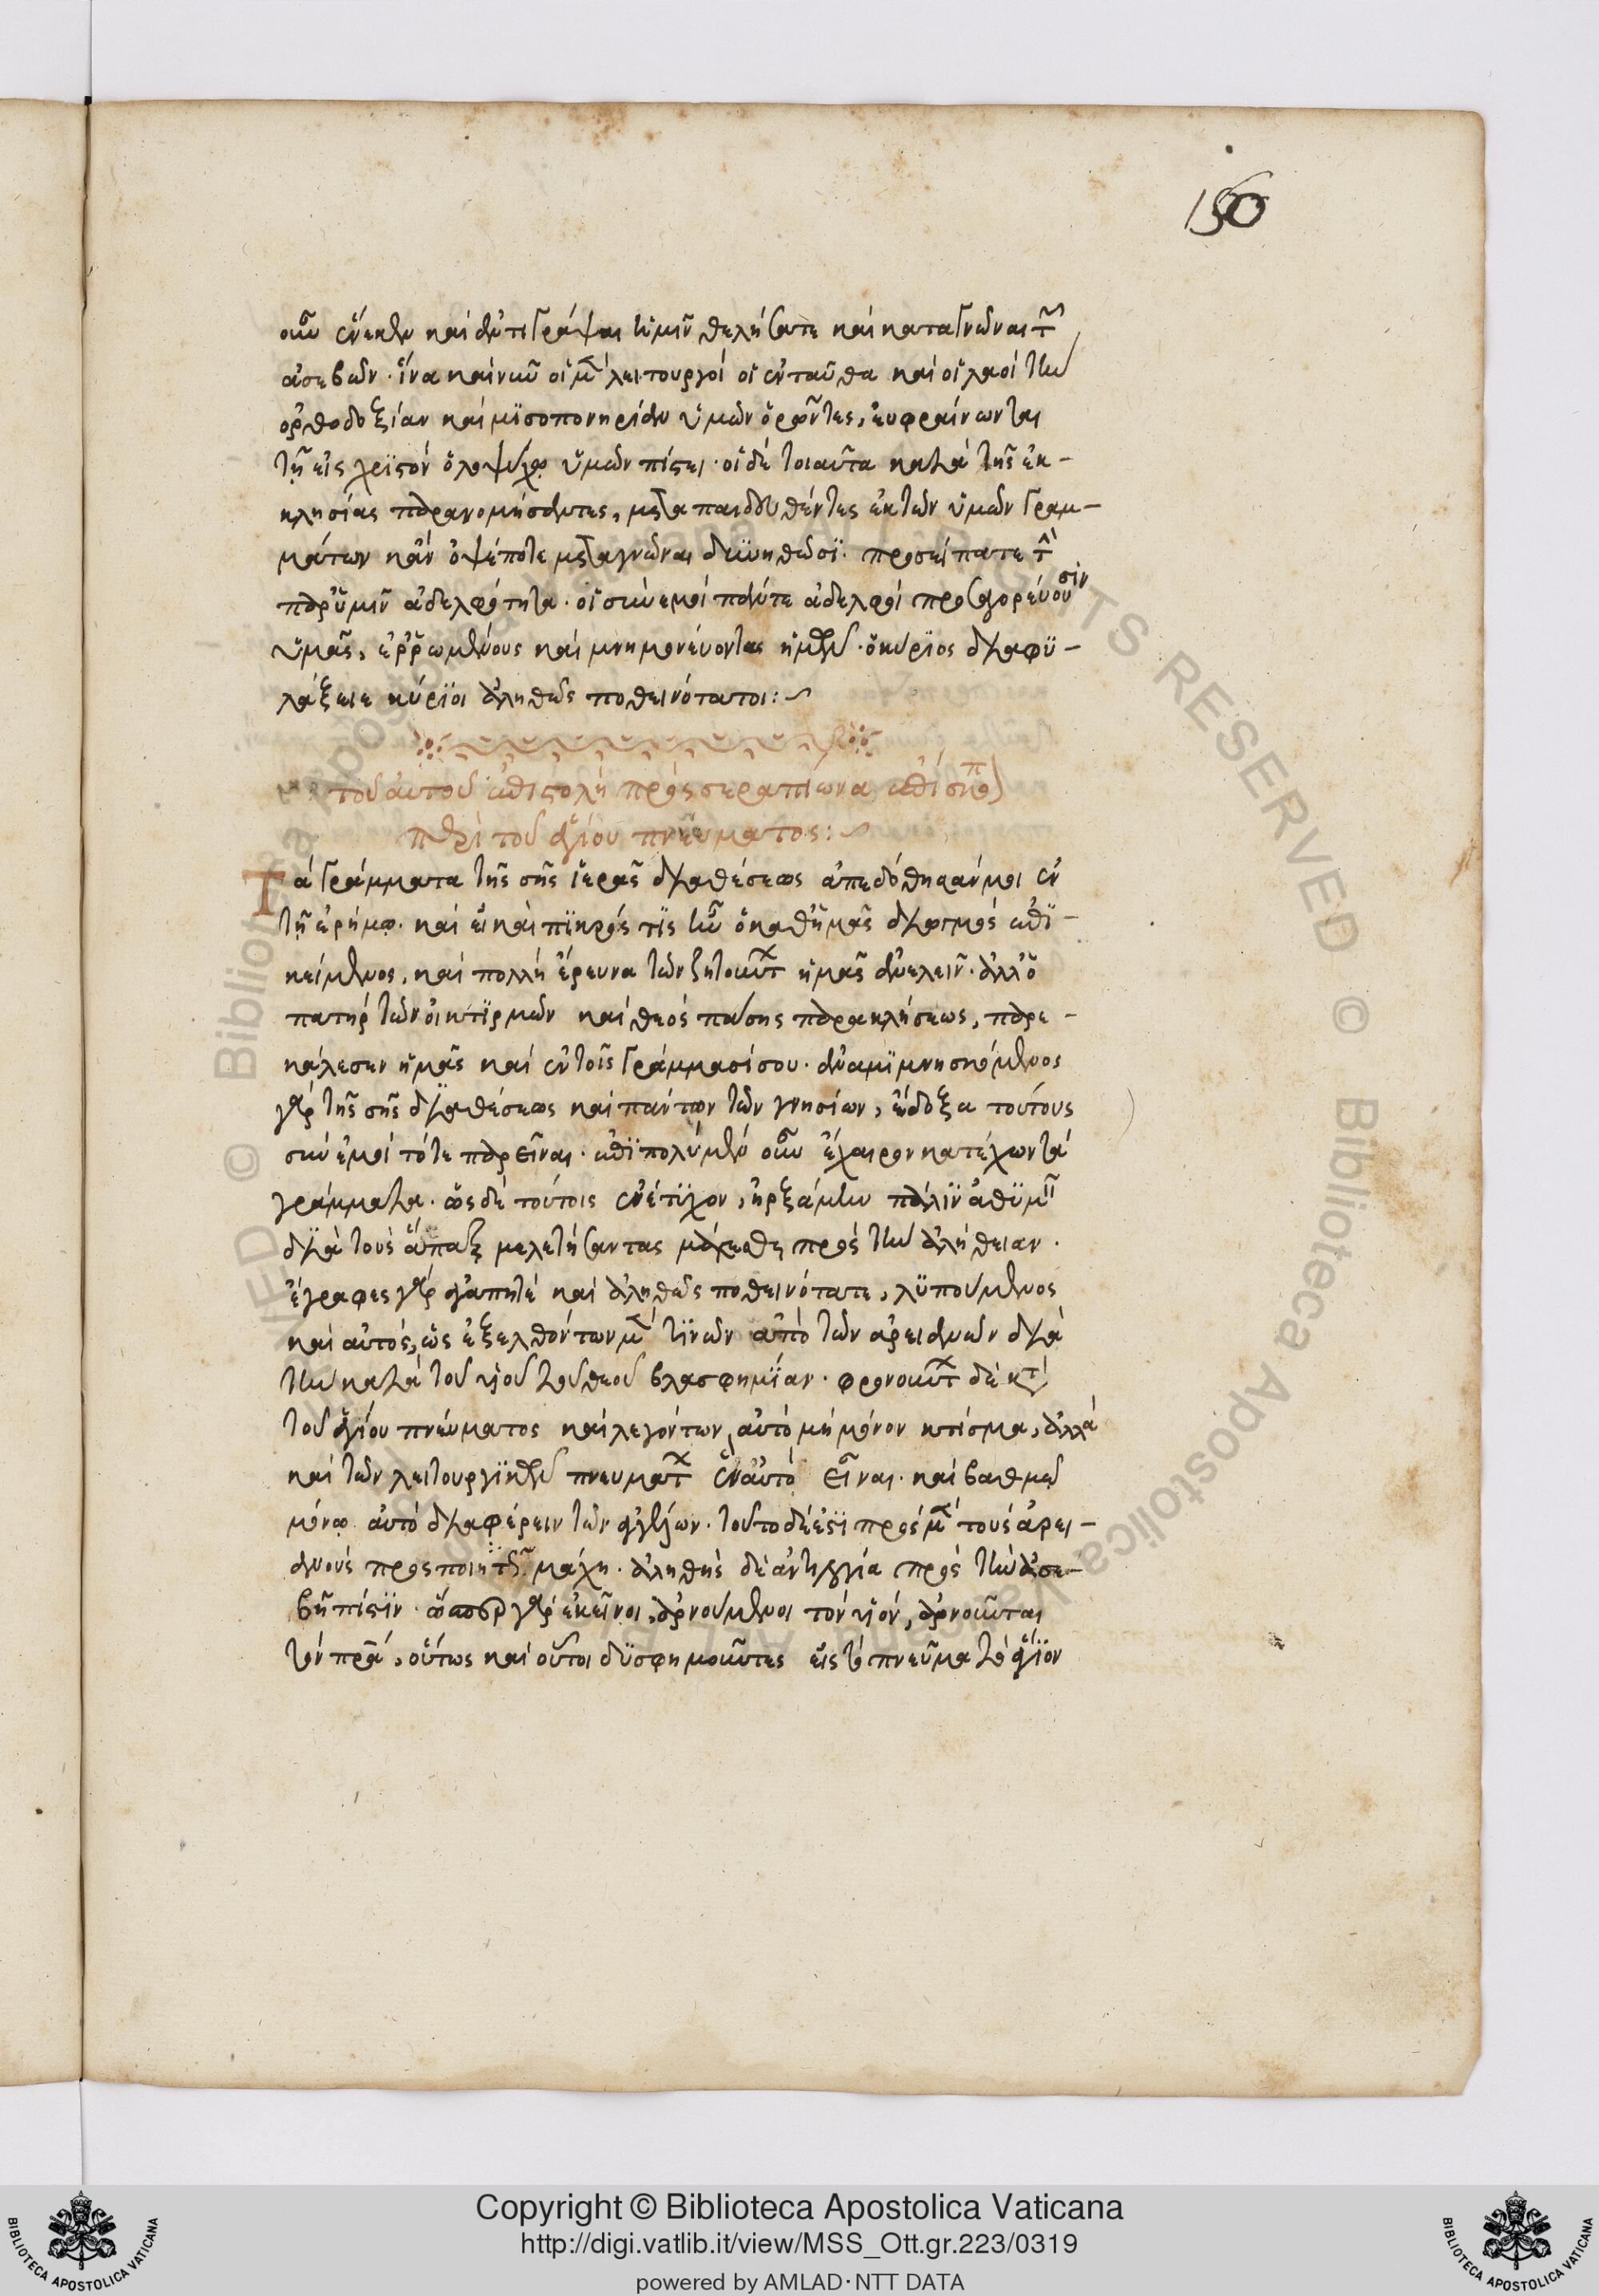 150
οὖν ἕνεκεν καὶ ἀντιγράψαι ἡμῖν θελήσατε καὶ καταγνῶναι τῶν
ἀσεβῶν· ἵνα καὶ νῦν οἱ μὲν λειτουργοὶ οἱ ἐνταῦθα καὶ οἱ λαοὶ τὴν
ὀρθοδοξίαν καὶ μϊσοπονηρίαν ὑμῶν ὁρῶντες, εὐφραίνωνται
τῇ εἰς χρϊστὸν ὁλοψύχῳ ὑμῶν πίστει· οἱ δὲ τοιαῦτα κατὰ τῆς ἐκ-
κλησίας παρανομήσαντες, μεταπαιδευθέντες ἐκ τῶν ὑμῶν γραμ-
μάτων κἂν ὀψέποτε μεταγνῶναι δυνηθῶσϊ· προσείπατε τὴν
παρ' ὑμῖν ἀδελφότητα· οἱ σὺν ἐμοὶ πάντες ἀδελφοὶ προσαγορεύουσιν
ὑμᾶς, ἐρρωμένους καὶ μνημονεύοντας ἡμῶν ὁ κύρϊος διαφϋ-
λάξειε κύρϊοι ἀληθῶς ποθεινότατοι:~
τοῦ αὐτοῦ ἐπιστολὴ πρὸς σεραπίωνα ἐπίσκοπον
περὶ τοῦ ἁγίου πνεύματος:~
Τὰ γράμματα τῆς σῆς ἱερᾶς διαθέσεως ἀπεδόθησάν μοι ἐν
τῇ ἐρήμῳ· καὶ εἰ καὶ πϊκρός τϊς ἦν ὁ καθ' ἡμᾶς διωγμὸς ἐπϊ-
κείμενος, καὶ πολλὴ ἔρευνα τῶν ζητούντων ἡμᾶς ἀνελεῖν· ἀλλ' ὁ
πατὴρ τῶν οἰκτϊρμῶν καὶ θεὸς πάσης παρακλήσεως, παρε-
κάλεσεν ἡμᾶς καὶ ἐν τοῖς γράμμασί σου· ἀναμϊμνησκόμενος
γὰρ τῆς σῆς διαθέσεως καὶ πάντων τῶν γνησίων, ἔδοξα τούτους
σὺν ἐμοὶ τότε παρεῖναι· ἐπϊπολὺ μὲν οὖν ἔχαιρον κατέχων τὰ
γράμματα· ὡς δὲ τούτοις ἐνέτϋχον, ἠρξάμην πάλϊν ἀθϋμεῖν
διὰ τοὺς ἅπαξ μελετήσαντας μάχεσθαι πρὸς τὴν ἀλήθειαν·
ἔγραφες γὰρ ἀγαπητὲ καὶ ἀληθῶς ποθεινότατε, λϋπούμενος
καὶ αὐτός, ὡς ἐξελθόντων μέν τϊνων ἀπὸ τῶν ἀρειανῶν διὰ
τὴν κατὰ τοῦ υἱοῦ τοῦ θεοῦ βλασφημίαν· φρονούντων δὲ κατὰ
τοῦ ἁγίου πνεύματος καὶ λεγόντων αὐτὸ μὴ μόνον κτίσμα, ἀλλὰ
καὶ τῶν λειτουργϊκῶν πνευμάτων ἓν αὐτὸ εἶναι· καὶ βαθμῷ
μόνῳ αὐτὸ διαφέρειν τῶν ἀγγέλων· τοῦτο δέ ἐστϊ πρὸς μὲν τοὺς ἀρει-
ανοὺς προσποιητὸς μάχη· ἀληθὴς δὲ ἀντιλογία πρὸς τὴν εὐσε-
βῆ πίστϊν· ὥσπερ γὰρ ἐκεῖνοι, ἀρνούμενοι τὸν υἱόν, ἀρνοῦνται
τὸν πρα, οὕτως καὶ οὗτοι δϋσφημοῦντες εἰς τὸ πνεῦμα τὸ ἅγϊον
Copyright © Biblioteca Apostolica Vaticana
http://digi.vatlib.it/view/MSS_Ott.gr.223/0319
powered by AMLAD·NTT DATA